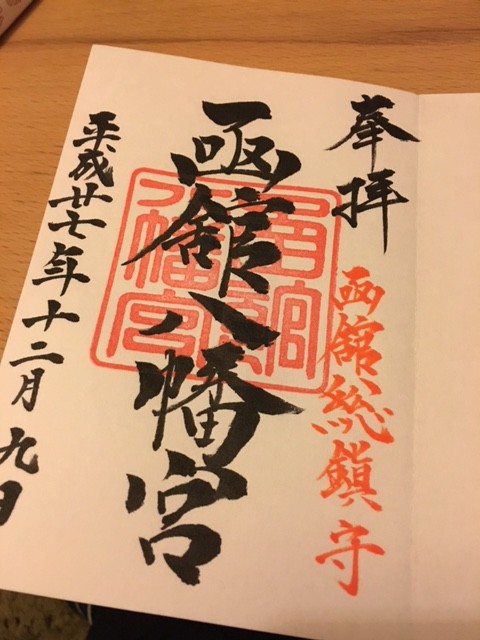 奉拝
函館総鎮守
函館八幡宮
函館八幡宮
平成廿七年十二月九日